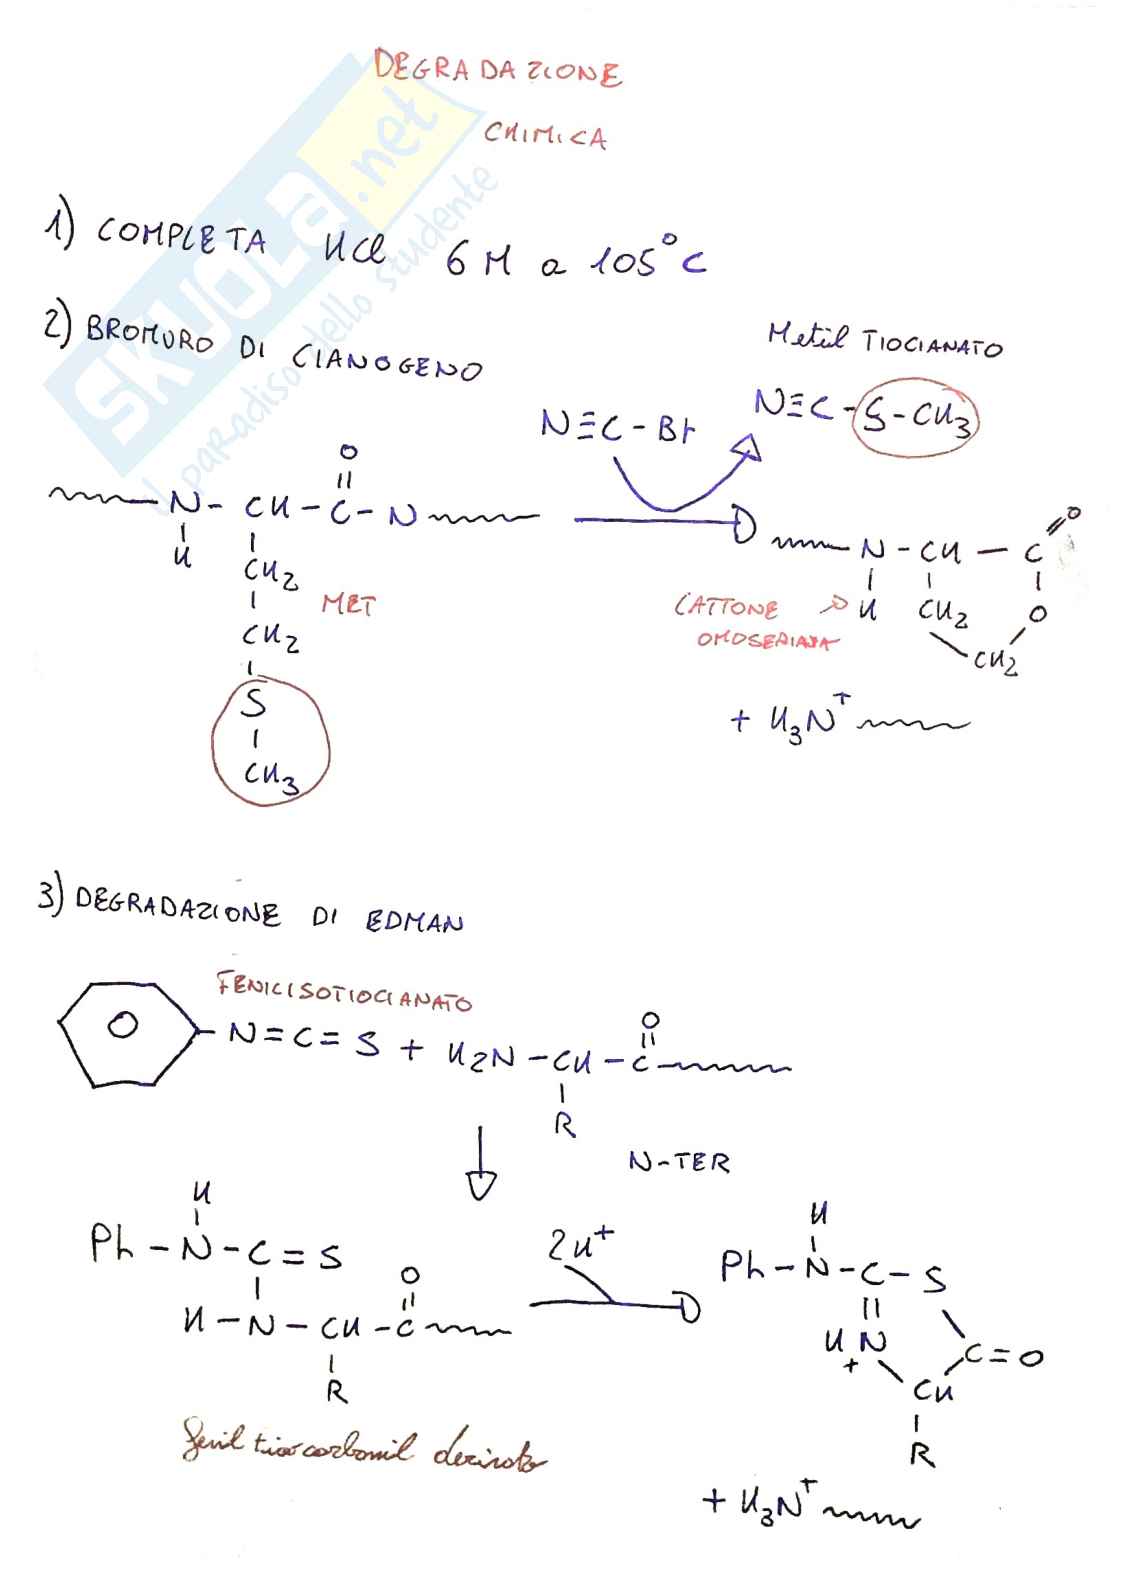 DEGRADAZIONE
CHIMICA
SKUOLA.net
il paradiso dello studente
1) COMPLETA HCl 6 M a 105°C
2) BROMURO DI CIANOGENO
Metil TIOCIANATO
N≡C-S-CH3
N≡C-Br
O
N-CH-C-N
H
CH2
MET
CH2
S
CH3
O
N-CH-C
H CH2 O
LATTONE
OMOSERINA
CH2
+ H3N+
3) DEGRADAZIONE DI EDMAN
FENILISOTIOCIANATO
O
N=C=S + H2N-CH-C
R
N-TER
H
Ph-N-C=S
O
H-N-CH-C
R
2H+
H
Ph-N-C-S
HN
+
C=O
CH
R
fenil tiocarbamil derivato
+ H3N+